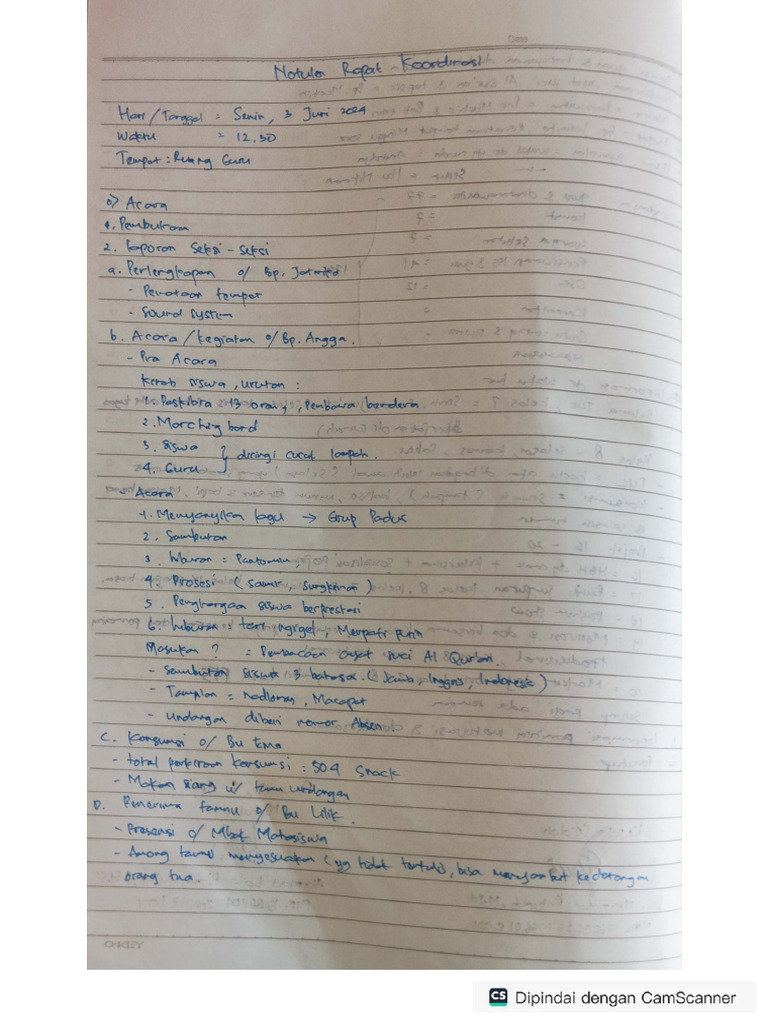 Notulen Rapat Koordinasi
Hari / Tanggal = Senin, 3 Juni 2024
Waktu = 12.30
Tempat : Ruang Guru
Acara
1. Pembukaan
2. Laporan Seksi - Seksi
a. Perlengkapan o/ Bp.
- Penataan tempat
- Sound System
b. Acara / kegiatan o/ Bp. Angga.
- Pra Acara
Kirab siswa, urutan :
1. Paskibra 13 orang, Pembawa bendera
2. Marching band
3. Siswa
4. Guru } diringi cucuk lampah.
- Acara
1. Menyanyikan lagu → Grup Padus
2. Sambutan
3. hiburan = Pantomim,
4. Prosesi ( samir, sungkeman )
5. Penghargaan siswa berprestasi
6. hiburan = tari ngigel, Merpati putih
Masukan ? = Pembacaan ayat suci Al Qur'an.
- Sambutan siswa 3 bahasa. ( Jawa, Inggris, Indonesia )
- Tampilan = Macapat
- Undangan diberi nomor Absen
C. Konsumsi o/ Bu Erna
- total perkiraan konsumsi : 504 Snack
- Makan siang u/ tamu undangan
D. Penerima tamu o/ Bu Lilik.
- Presensi o/ Mbak Mahasiswa
- Among tamu menyesuaikan (yg tidak tertulis), bisa menyambut kedatangan
orang tua.
CS Dipindai dengan CamScanner